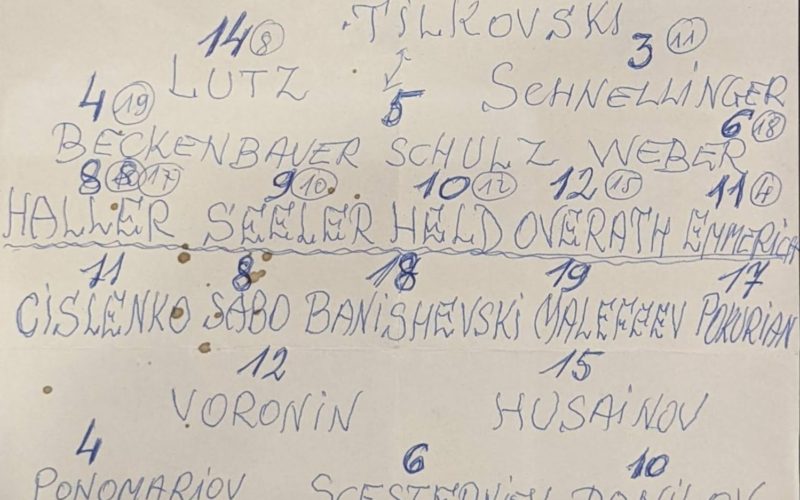 TILKOVSKI
14 8 3 11
LUTZ SCHNELLINGER
4 19 5 6 18
BECKENBAUER SCHULZ WEBER
8 17 9 10 10 12 12 15 11 4
HALLER SEELER HELD OVERATH EMMERICH
11 8 18 19 17
CISLENKO SABO BANISHEVSKI MALEFEEV POKURIAN
12 15
VORONIN HUSAINOV
4 6 10
PONOMARIOV